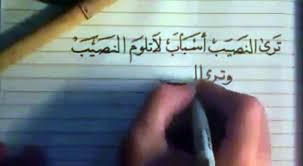 تَرىٰ النَصيَب أَسْبَابَ لاَتلومَ النَصيَبْ
وترىٰ ال